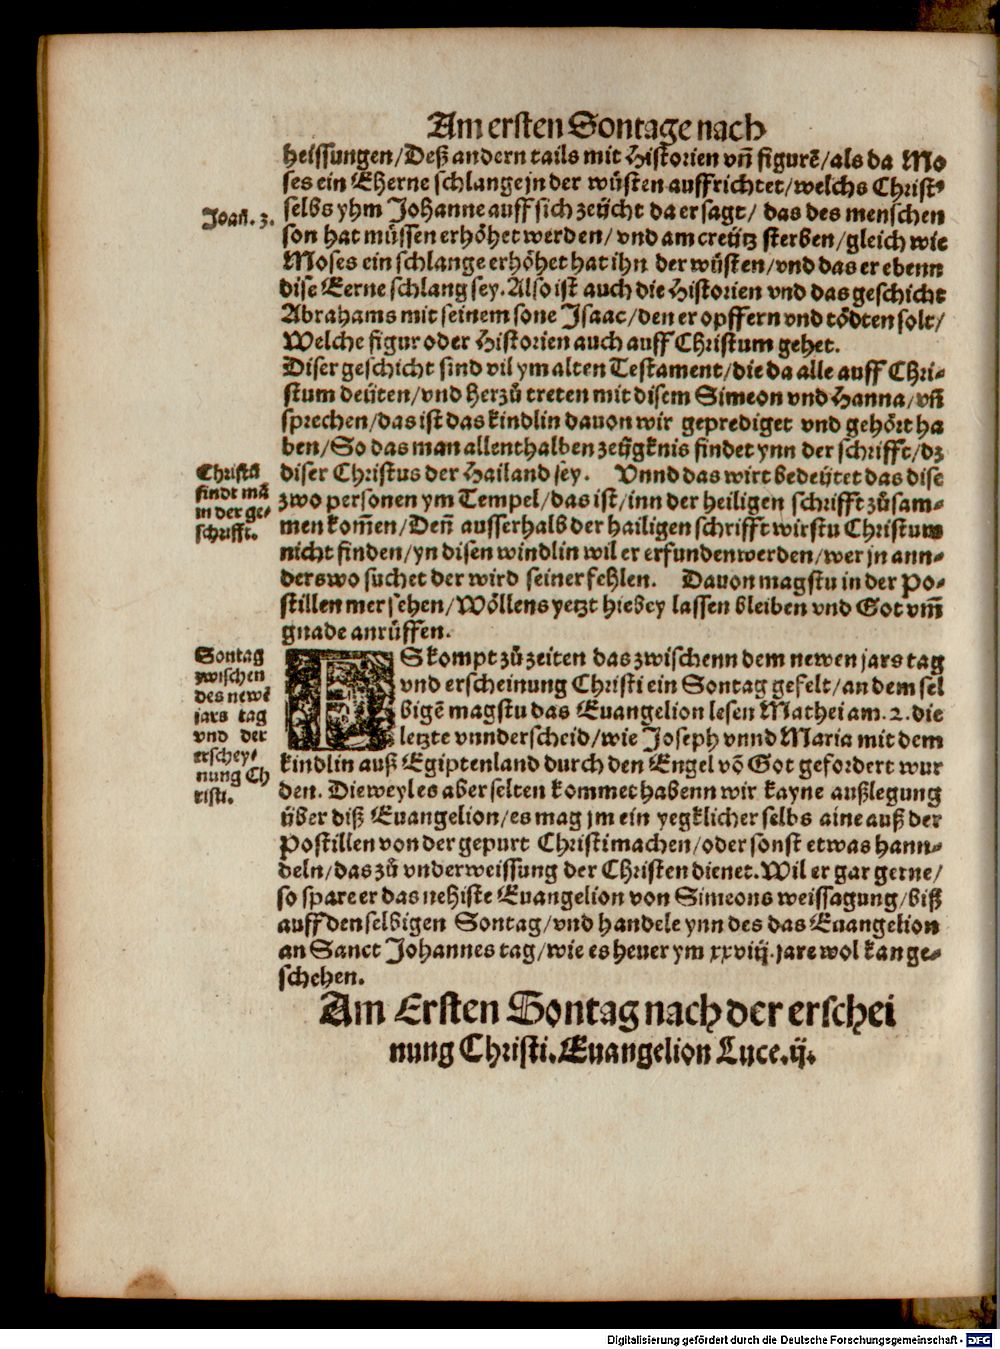 Am ersten Sontage nach
heissungen/Deß andern tails mit Historien vñ figurẽ/als da Mo
ses ein Eherne schlange jn der wüsten auffrichtet/welchs Christꝰ
selbs yhm Johanne auff sich zeücht da er sagt/ das des menschen
Joañ. 3.
son hat müssen erhöhet werden/ vnd am creütz sterben/gleich wie
Moses ein schlange erhöhet hat ihn der wüsten/vnd das er ebenn
dise Eerne schlang sey. Also ist auch die Historien vnd das geschicht
Abrahams mit seinem sone Jsaac/den er opffern vnd tödten solt/
Welche figur oder Historien auch auff Christum gehet.
Diser geschicht sind vil ym alten Testament/die da alle auff Chri-
stum deüten/vnd herzů treten mit disem Simeon vnd Hanna/vñ
sprechen/das ist das kindlin dauon wir geprediget vnd gehört ha
ben/So das man allenthalben zeügknis findet ynn der schrifft/dz
diser Christus der Hailand sey. Vnnd das wirt bedeütet das dise
Christũ
findt mã
in der ge-
schrifft.
zwo personen ym Tempel/das ist/inn der heiligen schrifft zůsam-
men kom̃en/Deñ ausserhalb der hailigen schrifft wirstu Christum
nicht finden/yn disen windlin wil er erfunden werden/wer jn ann-
derswo suchet der wird seiner fehlen. Dauon magstu in der Po-
stillen mer sehen/Wöllens yetzt hiebey lassen bleiben vnd Got vm̃
gnade anrüffen.
Sontag
zwischen
des newẽ
jars tag
vnd der
erschey-
nung Ch
risti.
ES kompt zů zeiten das zwischenn dem newen jars tag
vnd erscheinung Christi ein Sontag gefelt/an dem sel
bigẽ magstu das Euangelion lesen Mathei am. 2. die
letzte vnnderscheid/wie Joseph vnnd Maria mit dem
kindlin auß Egiptenland durch den Engel võ Got gefordert wur
den. Dieweyl es aber selten kommet habenn wir kayne außlegung
über diß Euangelion/es mag jm ein yegklicher selbs aine auß der
Postillen von der gepurt Christi machen/oder sonst etwas hann-
deln/das zů vnderweissung der Christen dienet. Wil er gar gerne/
so spare er das nehiste Euangelion von Simeons weissagung/biß
auff den selbigen Sontag/vnd handele ynn des das Euangelion
an Sanct Johannes tag/wie es hewer ym xxviij. jare wol kan ge-
schehen.
Am Ersten Sontag nach der erschei
nung Christi. Euangelion Luce. ij.
Digitalisierung gefördert durch die Deutsche Forschungsgemeinschaft - DFG